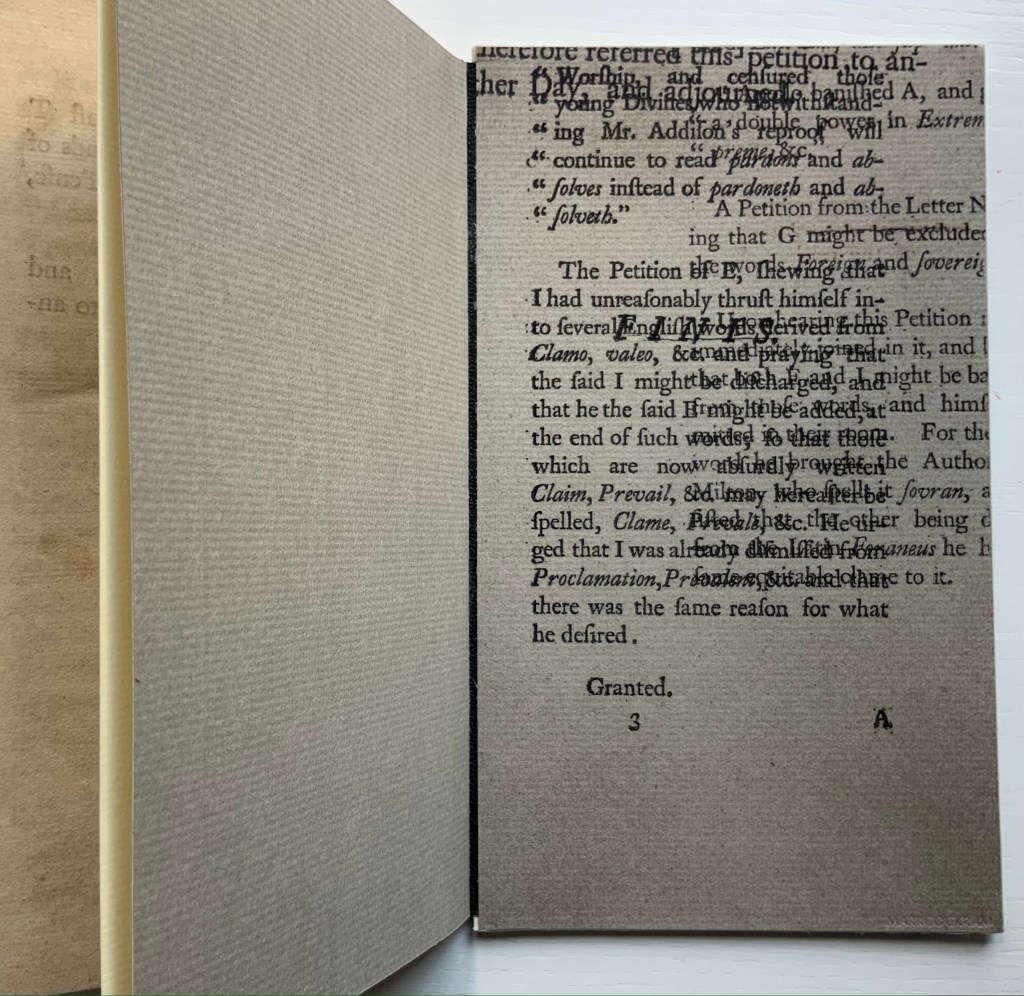 therefore referred this petition to an-
ther Day, and adjourned
“ Worſhip, and cenſured thoſe
“ young Divines who notwithſtand-
“ ing Mr. Addiſon's reproof will
“ continue to read pardons and ab-
“ ſolves inſtead of pardoneth and ab-
“ ſolveth.”
The Petition of E, ſhewing that
I had unreaſonably thruſt himſelf in-
to ſeveral Engliſh words derived from
Clamo, valeo, &c. and praying that
the ſaid I might be diſcharged, and
that he the ſaid E might be added, at
the end of ſuch words, ſo that thoſe
which are now abſurdly written
Claim, Prevail, &c. may hereafter be
ſpelled, Clame, Prevale, &c. He ur-
ged that I was already diſmiſſed from
Proclamation, Prevalent, &c. and that
there was the ſame reaſon for what
he deſired.
Granted.
3 A
baniſhed A, and
“ a double power in Extrem
“ preme, &c.
A Petition from the Letter N
ing that G might be excluded
the words Foreign and ſovereig
Upon hearing this Petition
immediately joined in it, and
that both E and I might be ba
from thoſe words, and himſ
mitted in their room. For the
word he brought the Autho
Milton, who ſpells it ſovran, a
ſiſted that the other being d
from the Latin Foraneus he h
ſome equitable clame to it.
FINES.